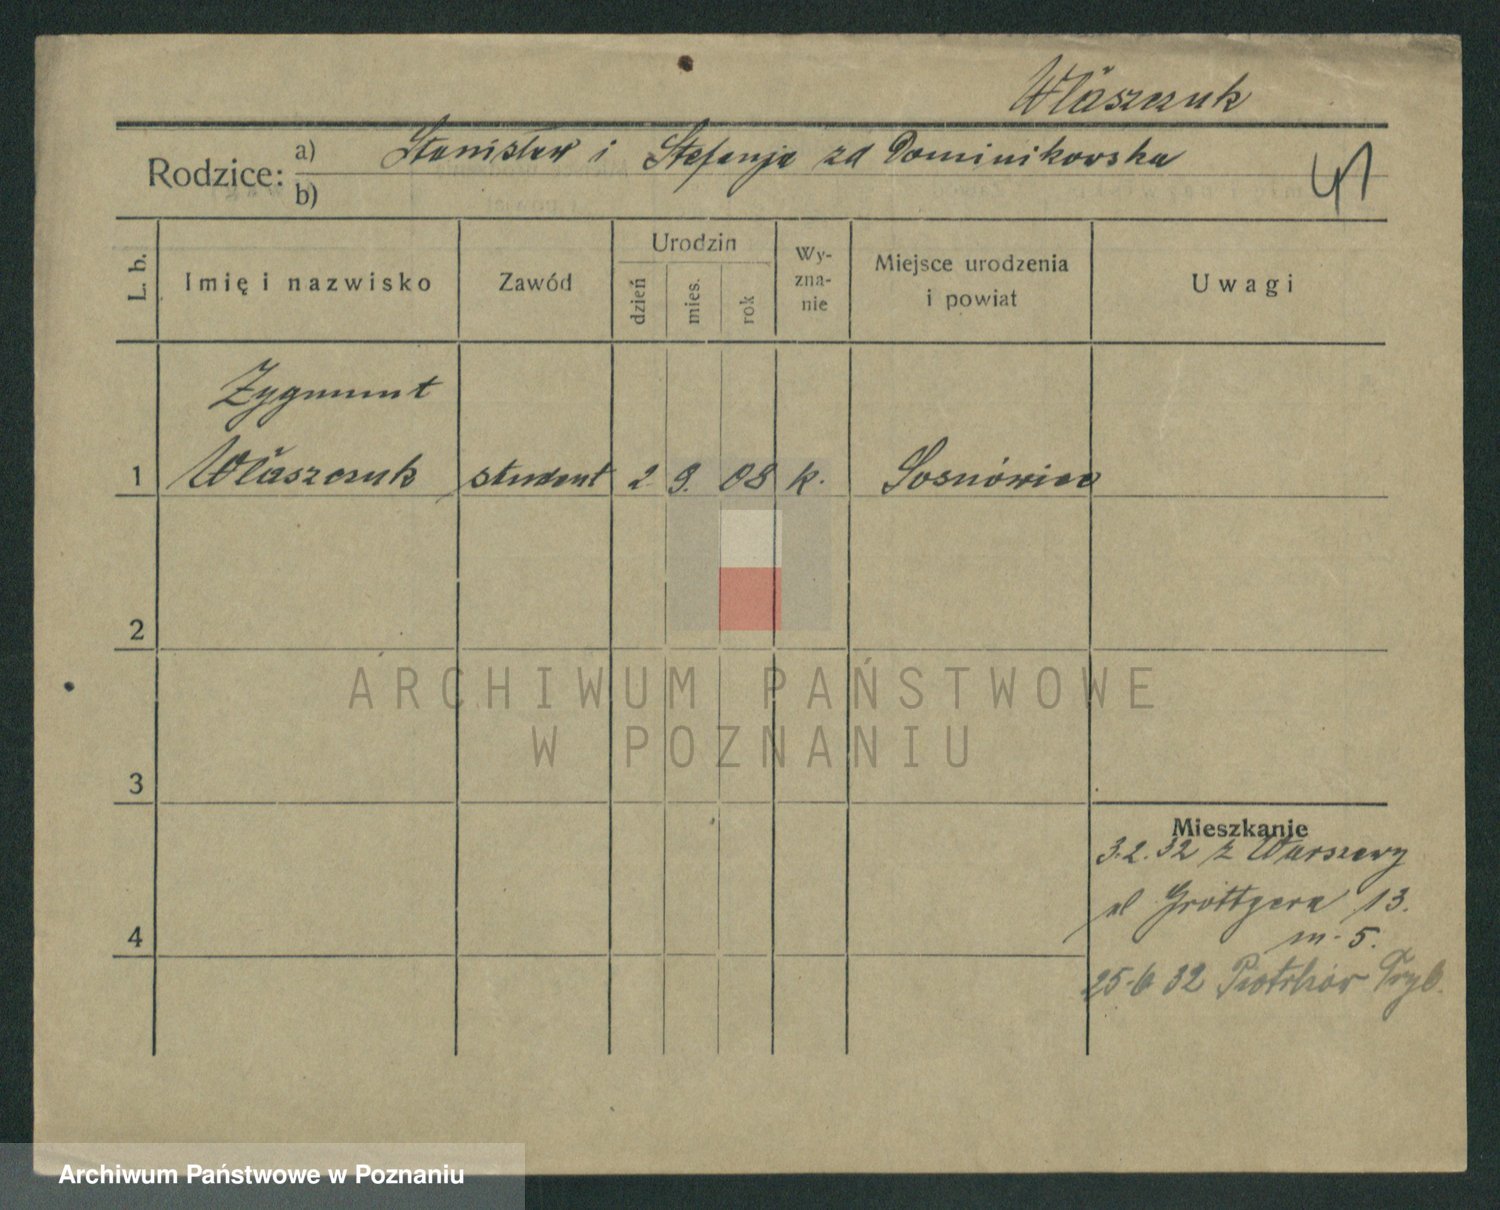 Właszczuk
Rodzice:
a) Stanisław i Stefanja zd Dominikowska
b)
L. b.
Imię i nazwisko
Zawód
Urodzin
dzień
mies.
rok
Wy-
zna-
nie
Miejsce urodzenia
i powiat
Uwagi
Zygmunt
1 Właszczuk student 2 9. 08 k. Sosnowiec
2
3
4
Mieszkanie
3.2.32 z Warszawy
ul Grottgera 13.
m. 5.
25.6 32 Piotrków Tryb.
ARCHIWUM PAŃSTWOWE
W POZNANIU
Archiwum Państwowe w Poznaniu